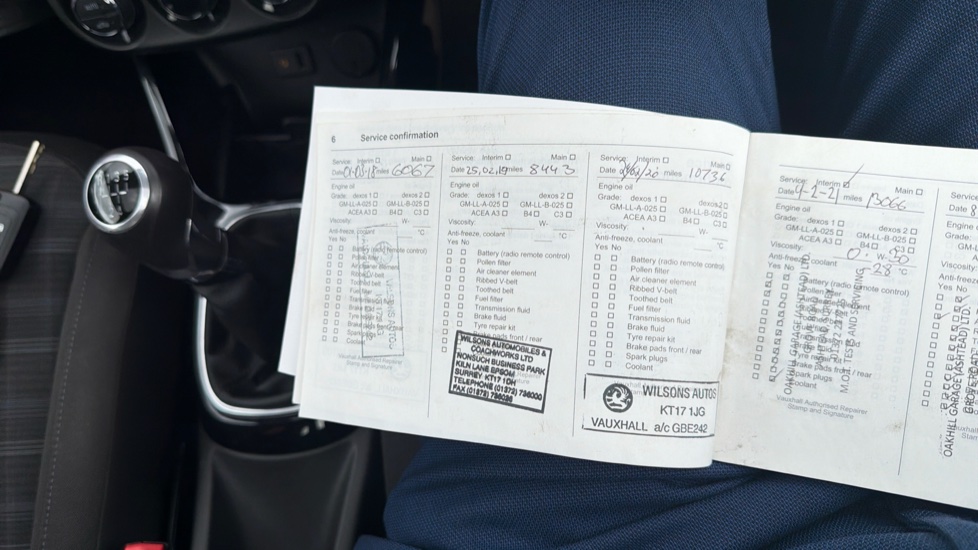 6 Service confirmation
Service: Interim ☐ Main ☐
Date 01-03-18 miles 6067
Engine oil
Grade: dexos 1 ☐ dexos 2 ☐
GM-LL-A-025 ☐ GM-LL-B-025 ☐
ACEA A3 ☐ B4 ☐ C3 ☐
Viscosity: W-
Anti-freeze, coolant °C
Yes No
Battery (radio remote control)
Pollen filter
Air cleaner element
Ribbed V-belt
Toothed belt
Fuel filter
Transmission fluid
Brake fluid
Tyre repair kit
Brake pads front / rear
Spark plugs
Coolant
Vauxhall Authorised Repairer
Stamp and Signature
Service: Interim ☐ Main ☐
Date 25,02,19 miles 8443
Engine oil
Grade: dexos 1 ☐ dexos 2 ☐
GM-LL-A-025 ☐ GM-LL-B-025 ☐
ACEA A3 ☐ B4 ☐ C3 ☐
Viscosity: W-
Anti-freeze, coolant °C
Yes No
Battery (radio remote control)
Pollen filter
Air cleaner element
Ribbed V-belt
Toothed belt
Fuel filter
Transmission fluid
Brake fluid
Tyre repair kit
Brake pads front / rear
WILSONS AUTOMOBILES &
COACHWORKS LTD
NONSUCH BUSINESS PARK
KILN LANE EPSOM
SURREY KT17 1DH
TELEPHONE (01372) 736000
Service: Interim ☐ Main ☐
Date /02/20 miles 10736
Engine oil
Grade: dexos 1 ☐ dexos 2 ☐
GM-LL-A-025 ☐ GM-LL-B-025 ☐
ACEA A3 ☐ B4 ☐ C3 ☐
Viscosity: W-
Anti-freeze, coolant °C
Yes No
Battery (radio remote control)
Pollen filter
Air cleaner element
Ribbed V-belt
Toothed belt
Fuel filter
Transmission fluid
Brake fluid
Tyre repair kit
Brake pads front / rear
Spark plugs
Coolant
WILSONS AUTOS
KT17 1JG
VAUXHALL a/c GBE242
Service: Interim ☐ Main ☐
Date 4-2-21 miles 13066
Engine oil
Grade: dexos 1 ☐ dexos 2 ☐
GM-LL-A-025 ☐ GM-LL-B-025 ☐
ACEA A3 ☐ B4 ☐ C3 ☐
Viscosity: 0 W- 30
Anti-freeze, coolant -28 °C
Yes No
Battery (radio remote control)
Pollen filter
Spark plugs
Coolant
OAKHILL GARAGE (ASHTEAD) LTD.
M.O.T. TESTS AND SERVICING
Vauxhall Authorised Repairer
Stamp and Signature
Service
Date 8
Engine
Grade:
Viscosity
Yes No
OAKHILL GARAGE (ASHTEAD) LTD.